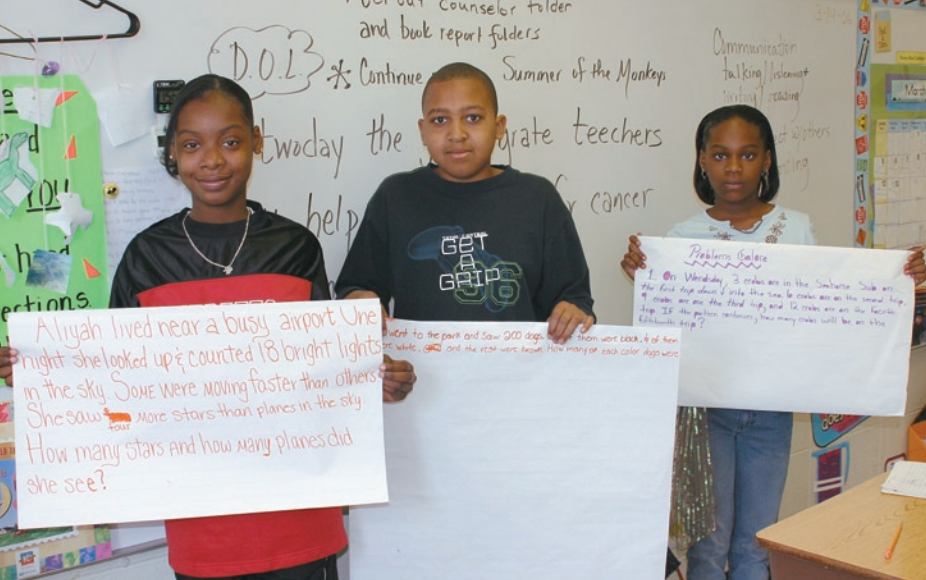 counselor folder
and book report folders
D.O.L.
* Continue Summer of the Monkeys
twoday the grate teechers
help for cancer
3-14-06
Communication
talking/listening
writing/reading
March
YOU
had
ections.
GET
A
GRIP
Aliyah lived near a busy airport. One
night she looked up & counted 18 bright lights
in the sky. Some were moving faster than others.
She saw four more stars than planes in the sky.
How many stars and how many planes did
she see?
went to the park and saw 200 dogs. them were black, of them
white, and the rest were brown. How many of each color dogs were
Problems Galore
1. On Wendsday, 3 crabs are in the Seahorse Sub on
the first trip down into the sea. 6 crabs are on the second trip.
9 crabs are on the third trip, and 12 crabs are on the fourth
trip. If the pattern continues, how many crabs will be on the
fifteenth trip?